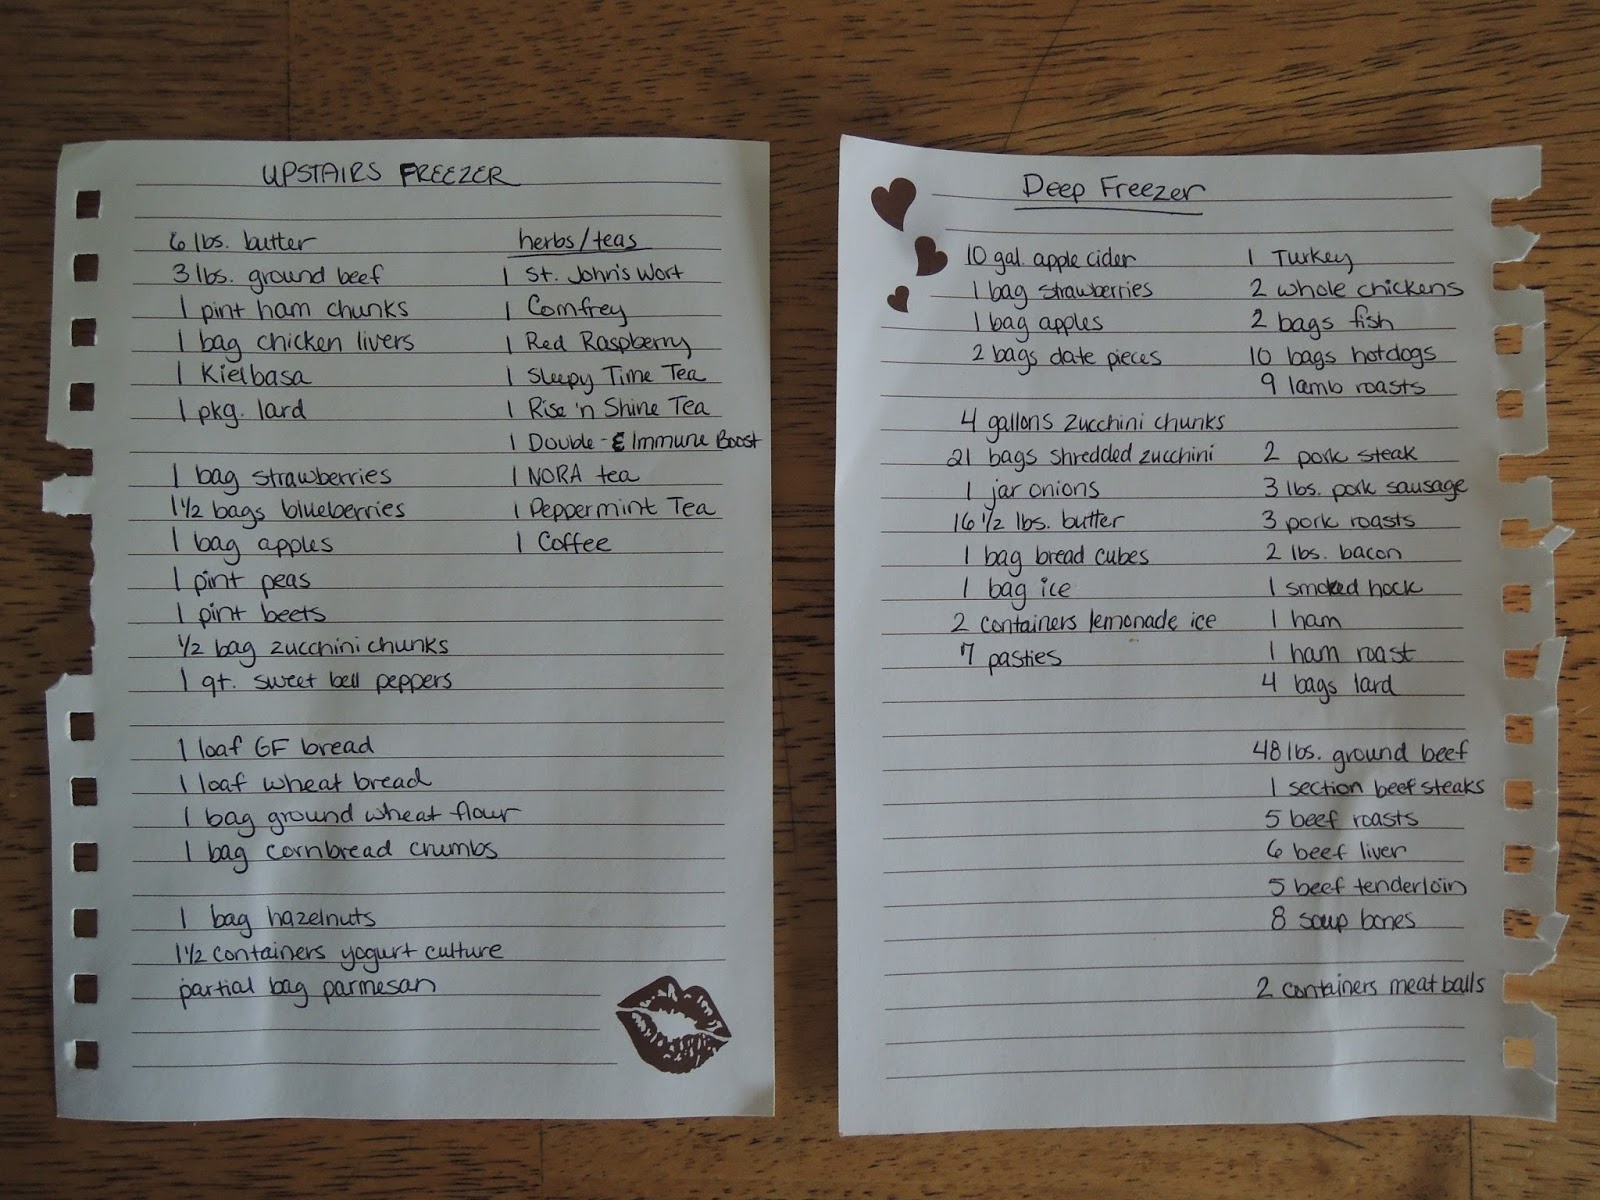 UPSTAIRS FREEZER
6 lbs. butter
3 lbs. ground beef
1 pint ham chunks
1 bag chicken livers
1 Kielbasa
1 pkg. lard
1 bag strawberries
1 1/2 bags blueberries
1 bag apples
1 pint peas
1 pint beets
1/2 bag zucchini chunks
1 qt. sweet bell peppers
1 loaf GF bread
1 loaf wheat bread
1 bag ground wheat flour
1 bag cornbread crumbs
1 bag hazelnuts
1 1/2 containers yogurt culture
partial bag parmesan
herbs/teas
1 St. John's Wort
1 Comfrey
1 Red Raspberry
1 Sleepy Time Tea
1 Rise 'n Shine Tea
1 Double-E Immune Boost
1 NORA tea
1 Peppermint Tea
1 Coffee
Deep Freezer
10 gal. apple cider
1 bag strawberries
1 bag apples
2 bags date pieces
4 gallons zucchini chunks
21 bags shredded zucchini
1 jar onions
16 1/2 lbs. butter
1 bag bread cubes
1 bag ice
2 containers lemonade ice
7 pasties
1 Turkey
2 whole chickens
2 bags fish
10 bags hotdogs
9 lamb roasts
2 pork steak
3 lbs. pork sausage
3 pork roasts
2 lbs. bacon
1 smoked hock
1 ham
1 ham roast
4 bags lard
48 lbs. ground beef
1 section beef steaks
5 beef roasts
6 beef liver
5 beef tenderloin
8 soup bones
2 containers meatballs